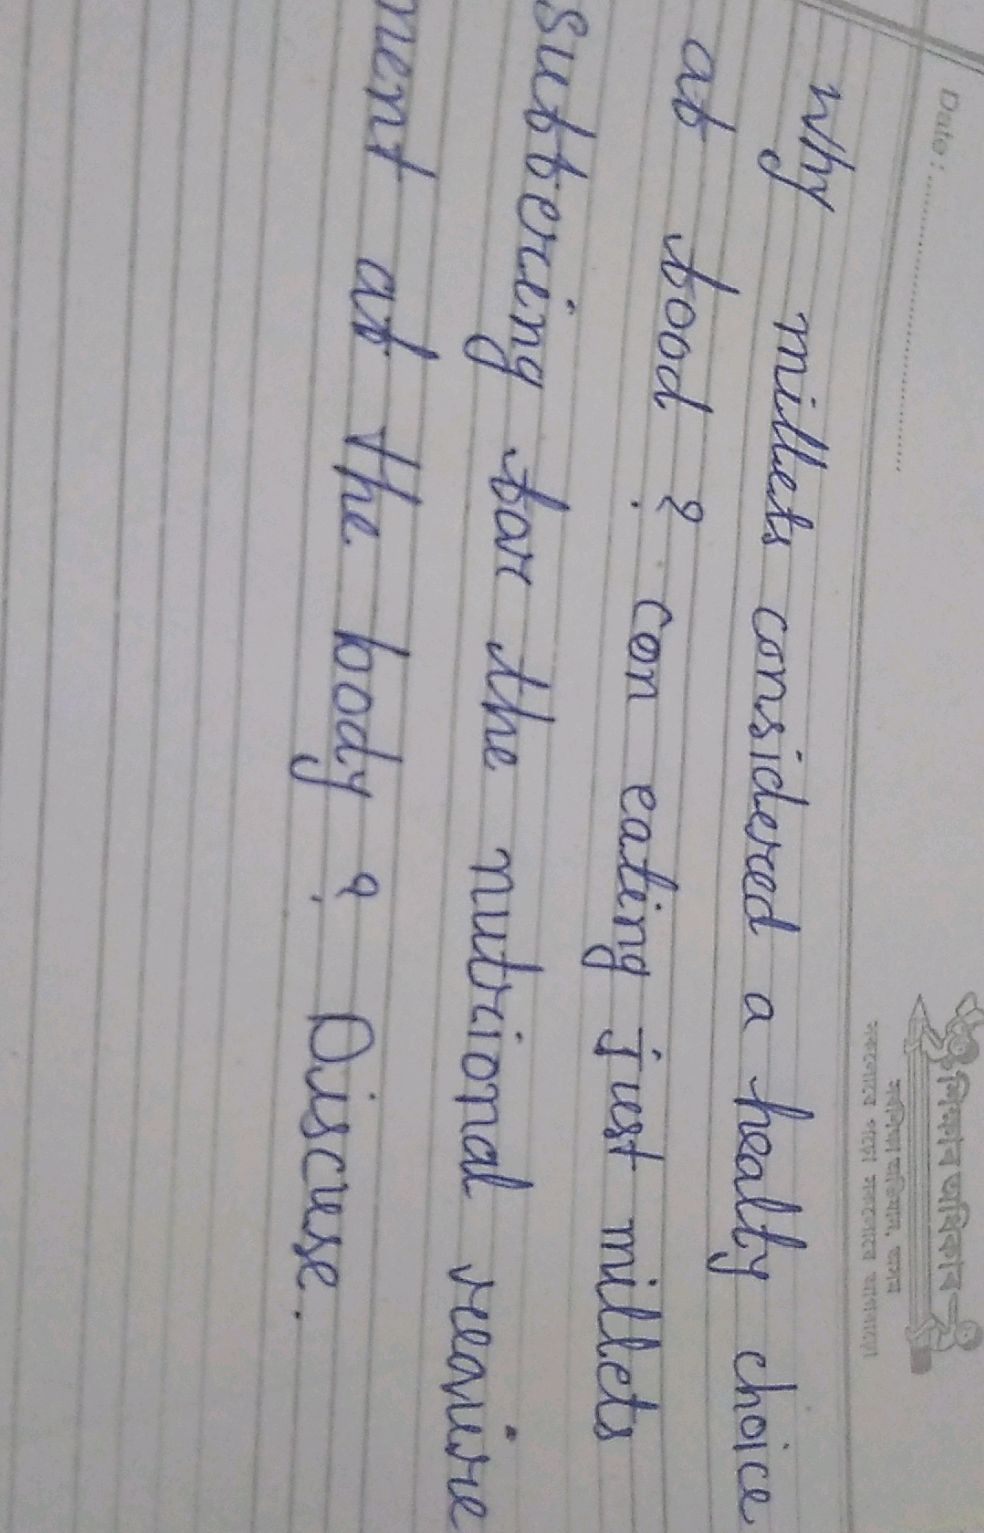 Date :
শিক্ষাৰ অধিকাৰ
সৰ্বশিক্ষা অভিযান, অসম
Why millets considered a healty choice
of food ? Can eating just millets
suffering for the nutrional require
ment of the body ? Discuse.